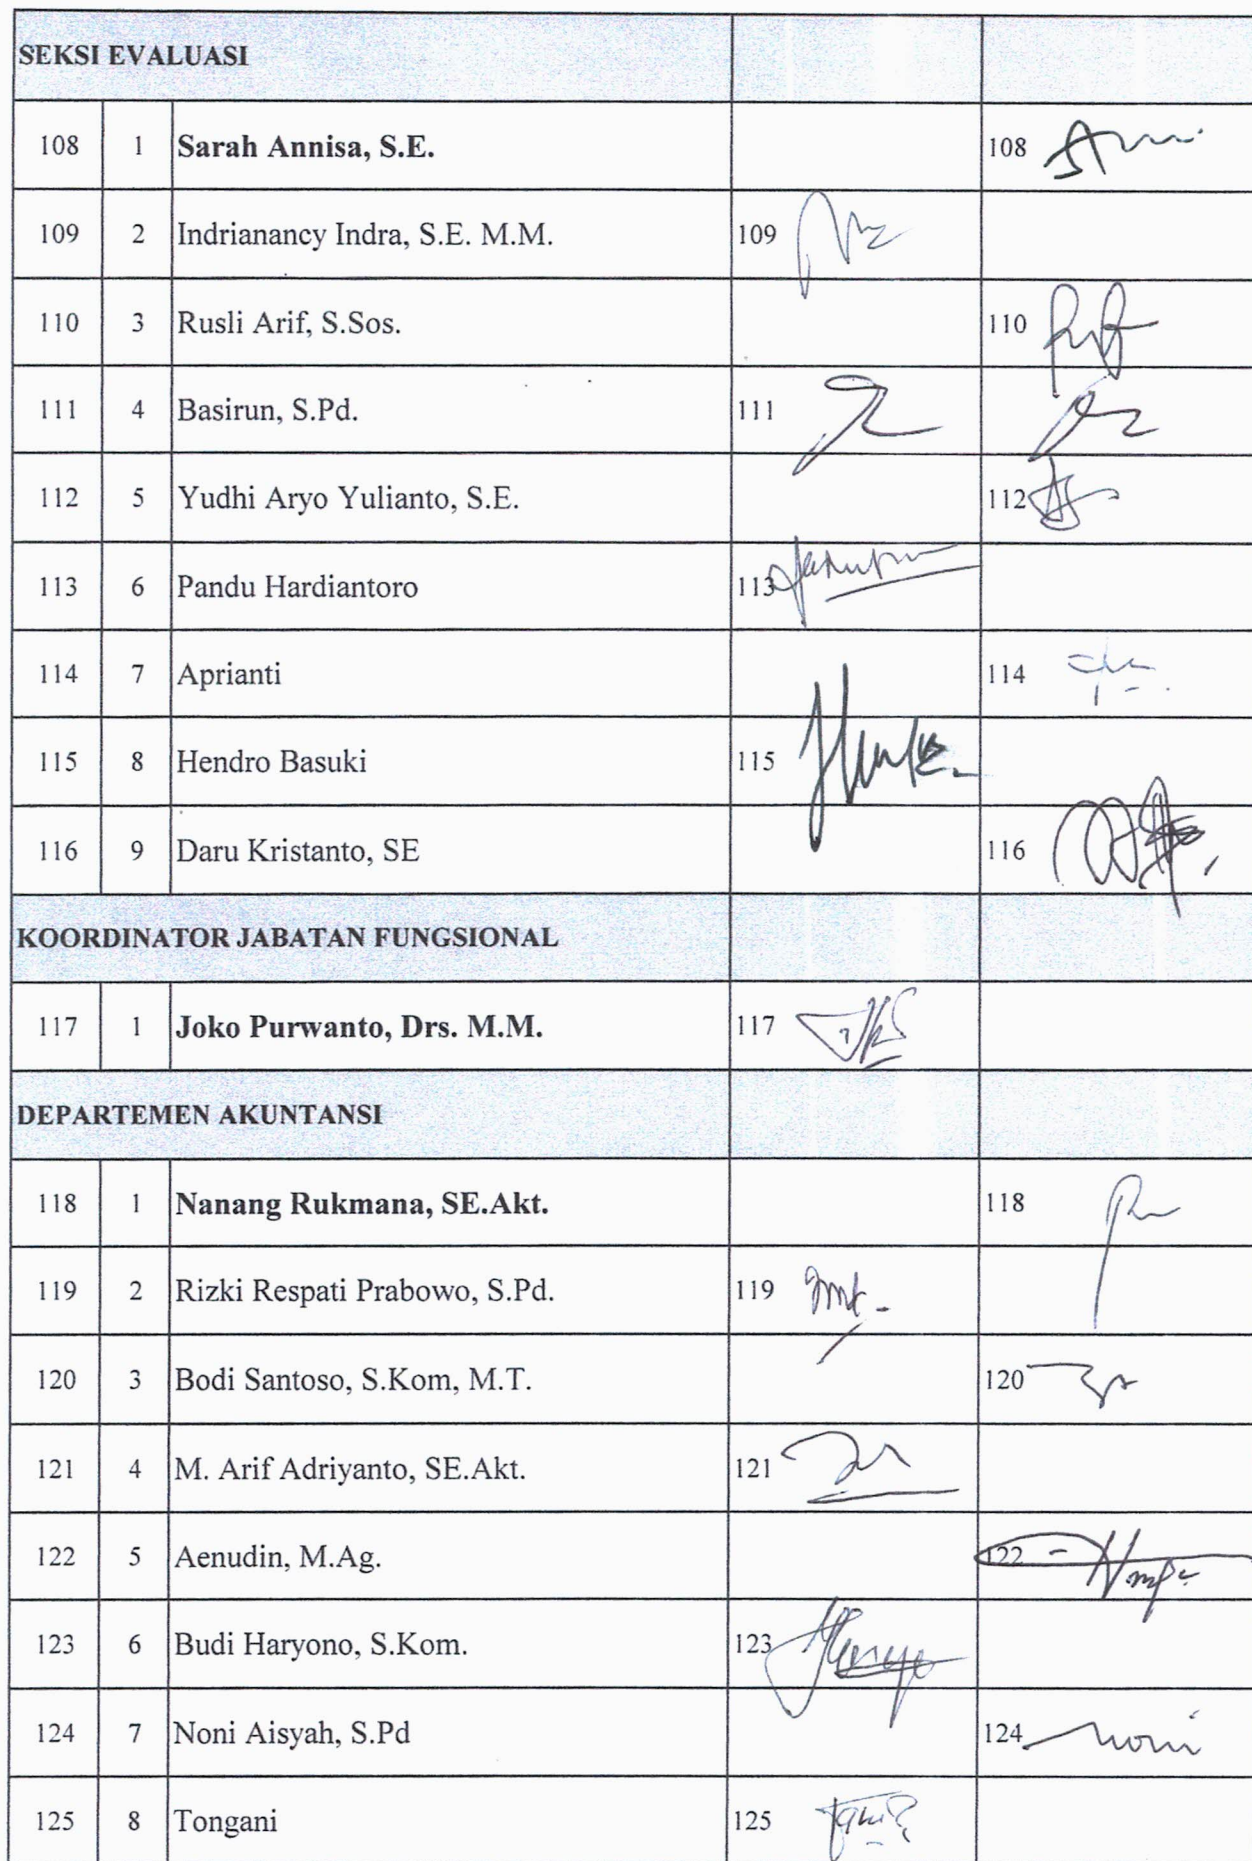 SEKSI EVALUASI
108 1 Sarah Annisa, S.E. 108
109 2 Indrianancy Indra, S.E. M.M. 109
110 3 Rusli Arif, S.Sos. 110
111 4 Basirun, S.Pd. 111
112 5 Yudhi Aryo Yulianto, S.E. 112
113 6 Pandu Hardiantoro 113
114 7 Aprianti 114
115 8 Hendro Basuki 115
116 9 Daru Kristanto, SE 116
KOORDINATOR JABATAN FUNGSIONAL
117 1 Joko Purwanto, Drs. M.M. 117
DEPARTEMEN AKUNTANSI
118 1 Nanang Rukmana, SE.Akt. 118
119 2 Rizki Respati Prabowo, S.Pd. 119
120 3 Bodi Santoso, S.Kom, M.T. 120
121 4 M. Arif Adriyanto, SE.Akt. 121
122 5 Aenudin, M.Ag. 122
123 6 Budi Haryono, S.Kom. 123
124 7 Noni Aisyah, S.Pd 124 noni
125 8 Tongani 125